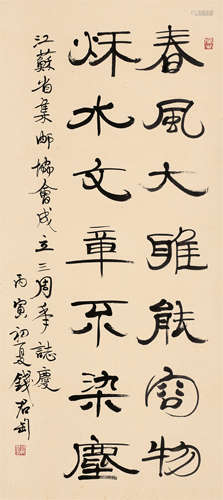 春風大雅能容物
秌水文章不染塵
江蘇省集邮協會成立三周年誌慶
丙寅初夏錢君匋